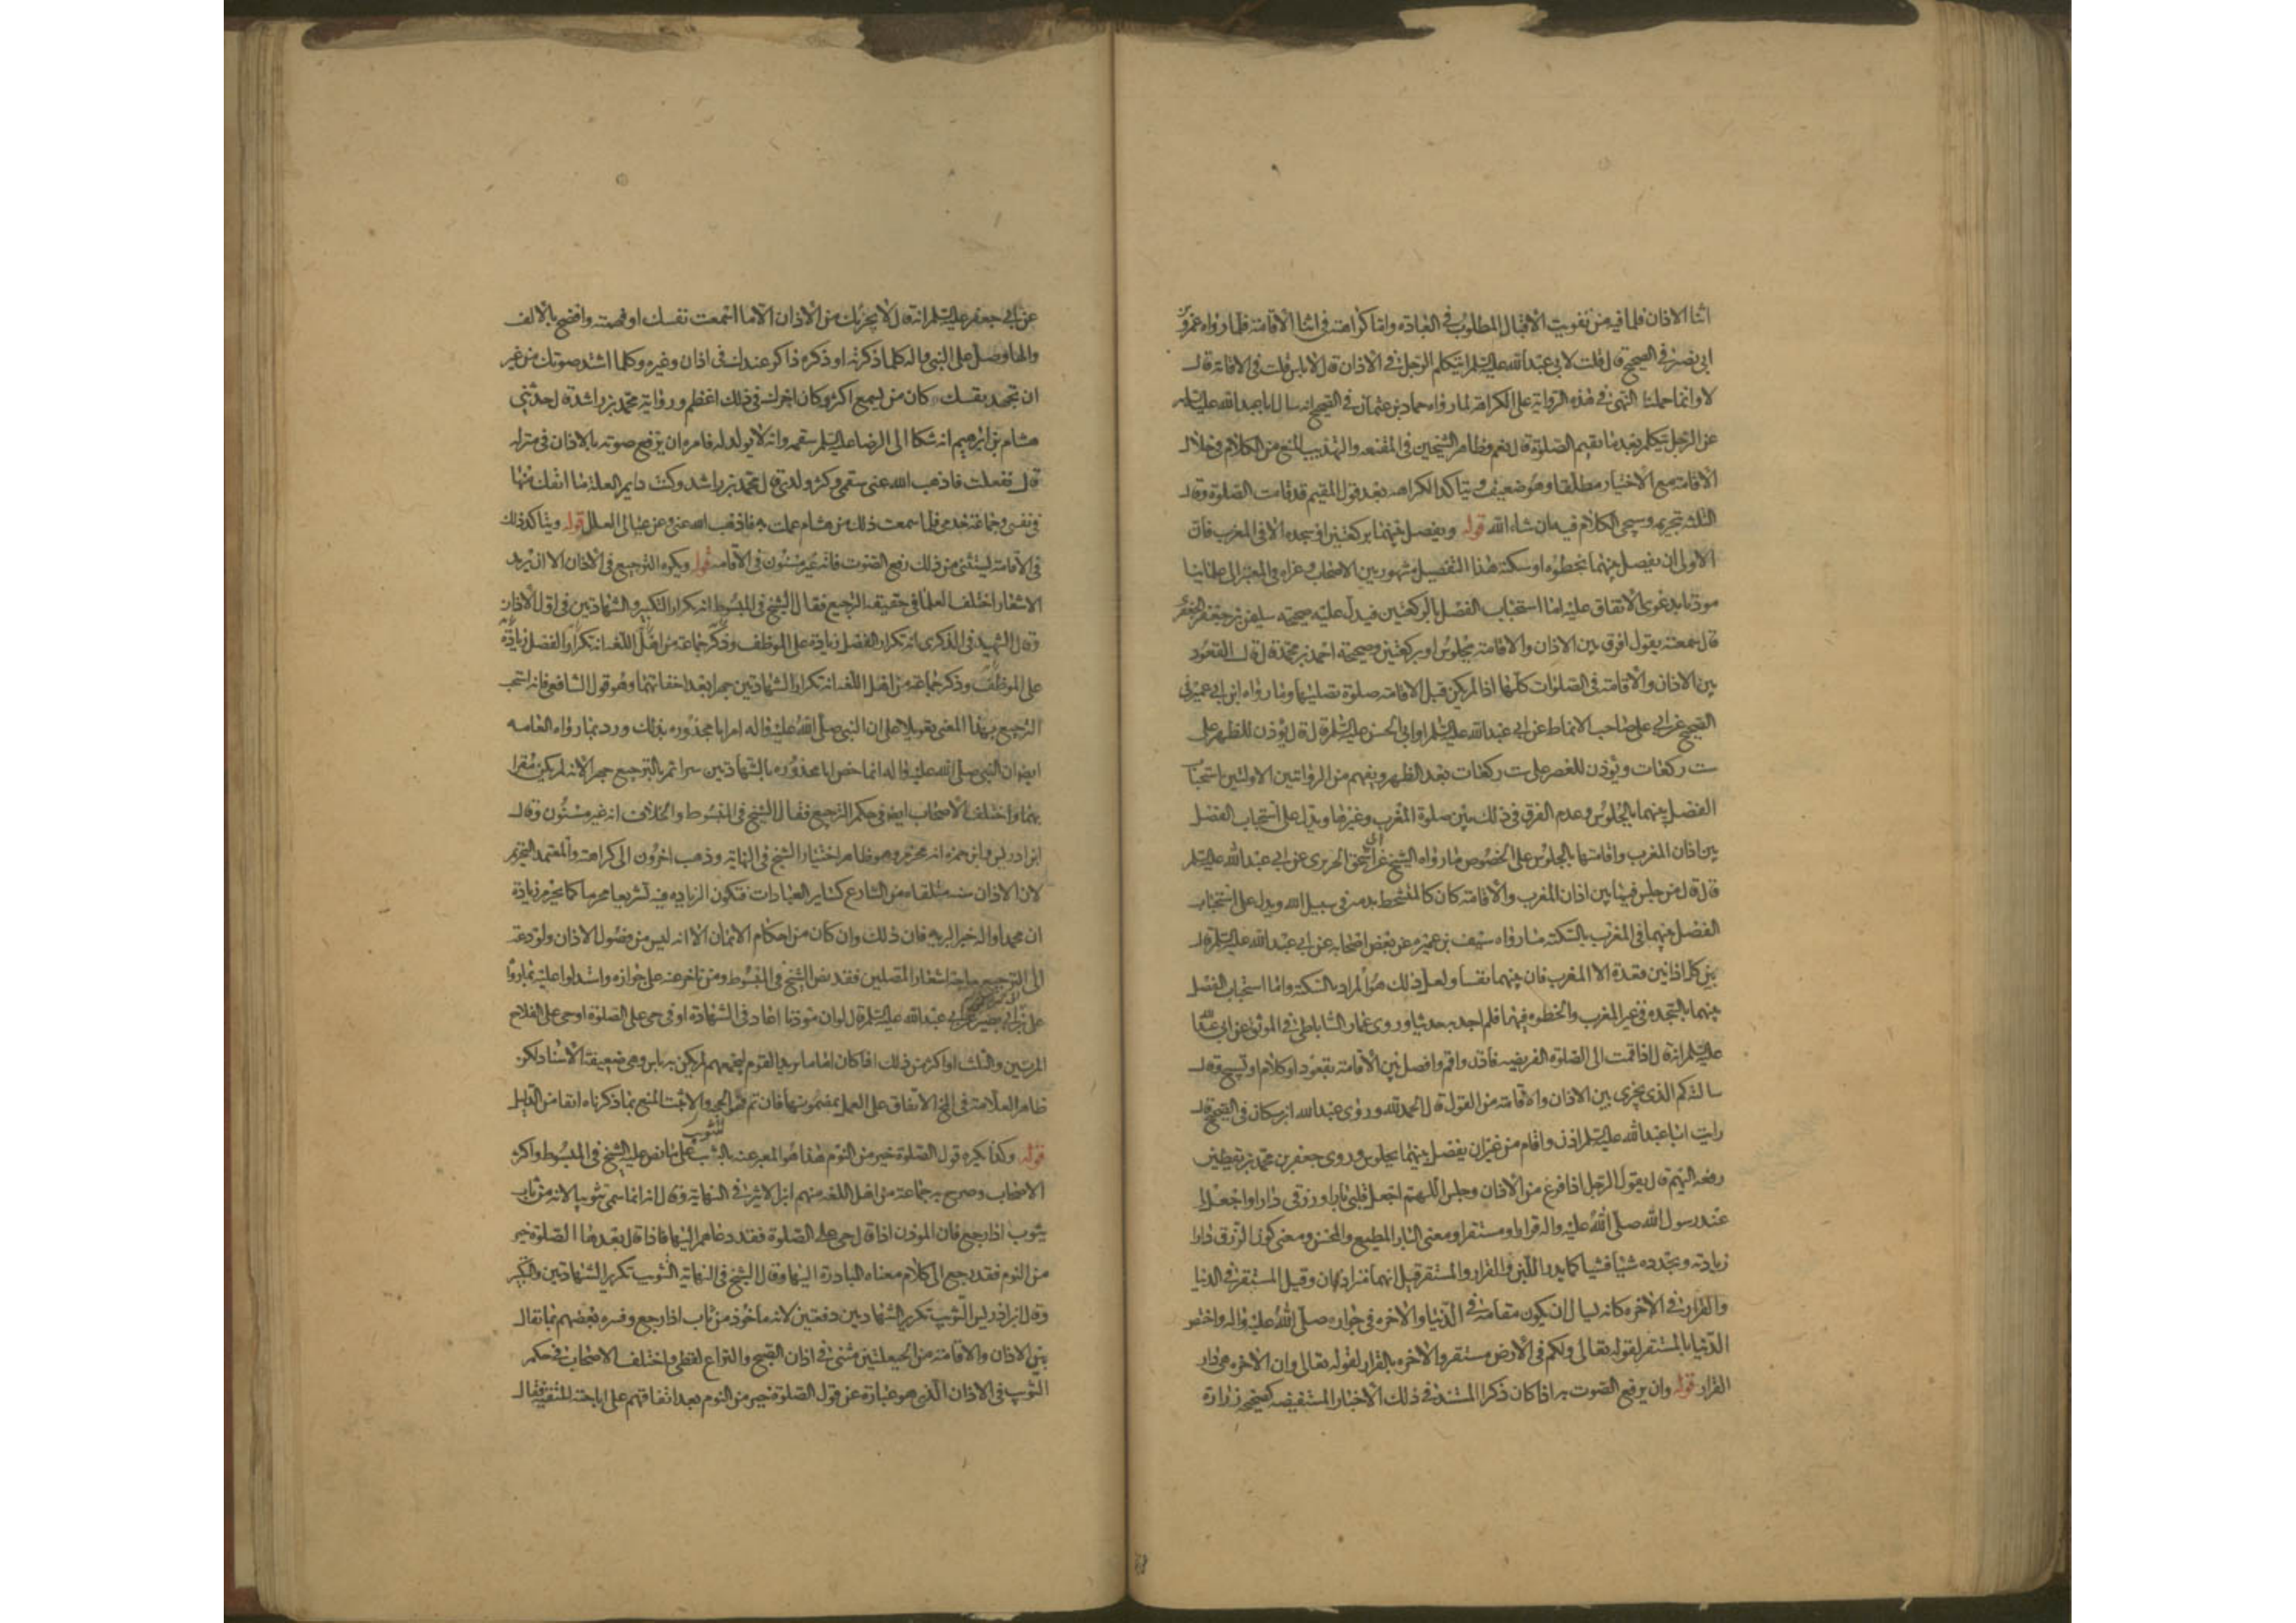 اثنا الاذان فلما فيه من تفويت الاقبال المطلوب في العبادة واما كراهته في اثنا الاقامة فلما رواه عمرو بن
ابي نصر في الصحيح قال قلت لابي عبد الله عليه السلم ايتكلم الرجل في الاذان قال لا باس قلت في الاقامة قال
لا وانما حملنا النهي في هذه الرواية على الكراهة لما رواه حماد بن عثمان في الصحيح انه سال ابا عبد الله عليه السلم
عن الرجل يتكلم بعد ما يقيم الصلوة قال نعم وظاهر الشيخين في المقنعه والتهذيب المنع من الكلام في خلال
الاقامة مع الاختيار مطلقا وهو ضعيف ويتاكد الكراهه بعد قول المقيم قد قامت الصلوة وقال
الثلثه بتحريمه وسيجي الكلام فيه ان شاء الله قوله ويفصل بينهما بركعتين او سجده الا في المغرب فان
الاولى ان يفصل بينهما بخطوه او سكتة هذا التفصيل مشهور بين الاصحاب وعزاه في المعتبر الى علمائنا
موذنا بدعوى الاتفاق عليه اما استحباب الفصل بالركعتين فيدل عليه صحيحه سليمن بن جعفر الجعفري
قال سمعته يقول افرق بين الاذان والاقامة بجلوس او بركعتين وصحيحة احمد بن محمد قال قال القعود
بين الاذان والاقامة في الصلوات كلها اذا لم يكن قبل الاقامة صلوة تصليها وما رواه ابن ابي عمير في
الصحيح عن ابي علي صاحب الانماط عن ابي عبد الله عليه السلم او ابي الحسن عليه السلم قال قال يؤذن للظهر على
ست ركعات ويؤذن للعصر على ست ركعات بعد الظهر ويفهم من الروايتين الاولتين استحباب
الفصل بينهما بالجلوس وعدم الفرق في ذلك بين صلوة المغرب وغيرها ويدل على استحباب الفصل
بين اذان المغرب واقامتها بالجلوس على الخصوص ما رواه الشيخ عن اسحق الحريري عن ابي عبد الله عليه السلم
قال قال من جلس فيما بين اذان المغرب والاقامة كان كالمتشحط بدمه في سبيل الله ويدل على استحباب
الفصل بينهما في المغرب بالسكتة ما رواه سيف بن عميره عن بعض اصحابه عن ابي عبد الله عليه السلم قال
بين كل اذانين قعدة الا المغرب فان بينهما نفسا ولعل ذلك هو المراد بالسكتة واما استحباب الفصل
بينهما بالسجدة في غير المغرب والخطوه فيها فلم اجد به حديثا وروى عمار الساباطي في الموثق عن ابي عبد الله
عليه السلم انه قال اذا قمت الى الصلوة الفريضه فاذن واقم وافصل بين الاقامة بقعود او كلام او تسبيح وقال
سالته كم الذي يجزي بين الاذان والاقامة من القول قال الحمد لله وروى عبد الله ابن مسكان في الصحيح قال
رايت ابا عبد الله عليه السلم اذن واقام من غير ان يفصل بينهما بجلوس وروى جعفر بن محمد بن يقطين
رفعه اليهم قال يقول الرجل اذا فرغ من الاذان وجلس اللهم اجعل قلبي بارا ورزقي دارا واجعل لي
عند رسول الله صلى الله عليه واله قرارا ومستقرا ومعنى البار المطيع والمحسن ومعنى كون الرزق دارا
زيادته وتجدده شيئا فشيئا كما يدر اللبن والقرار والمستقر قيل انهما مترادفان وقيل المستقر في الدنيا
والقرار في الاخره كانه يسال ان يكون مقامه في الدنيا والاخره في جواره صلى الله عليه واله واختص
الدنيا بالمستقر لقوله تعالى ولكم في الارض مستقر والاخره بالقرار لقوله تعالى وان الاخره هي دار
القرار قوله وان يرفع الصوت به اذا كان ذكرا المستند في ذلك الاخبار المستفيضه كصحيحه زرارة
عن ابي جعفر عليه السلم انه قال لا يجزيك من الاذان الا ما اسمعت نفسك او فهمته وافصح بالالف
والها وصل على النبي واله كلما ذكرته او ذكره ذاكر عندك في اذان وغيره وكلما اشتد صوتك من غير
ان تجهد بنفسك كان من يسمع اكثر وكان اجرك في ذلك اعظم ورواية محمد بن راشد قال حدثني
هشام بن ابرهيم انه شكا الى الرضا عليه السلم سقمه وانه لا يولد له فامره ان يرفع صوته بالاذان في منزله
قال ففعلت فاذهب الله عني سقمي وكثر ولدي قال محمد بن راشد وكنت دايم العلة ما انفك منها
في نفسي وجماعة خدمي فلما سمعت ذلك من هشام عملت به فاذهب الله عني وعن عيالي العلل قوله ويتاكد ذلك
في الاقامة ليستثنى من ذلك رفع الصوت فانه غير مسنون في الاقامه قوله ويكره الترجيع في الاذان الا ان يريد
الاشعار اختلف العلما في حقيقة الترجيع فقال الشيخ في المبسوط انه تكرار التكبير والشهادتين في اول الاذان
وقال الشهيد في الذكرى انه تكرار الفصل زيادة على الموظف وذكر جماعة من اهل اللغه انه تكرار الفصل زيادة
على الموظف وذكر جماعة من اهل اللغه انه تكرار الشهادتين جهرا بعد اخفاتهما وهو قول الشافعي فانه استحب
الترجيع بهذا المعنى تعويلا على ان النبي صلى الله عليه واله امر ابا محذوره بذلك ورد بما رواه العامه
ايضا ان النبي صلى الله عليه واله انما خص ابا محذوره بالشهادتين سرا ثم بالترجيع جهرا لانه لم يكن مقرا
بهما واختلف الاصحاب ايضا في حكم الترجيع فقال الشيخ في المبسوط والخلاف انه غير مسنون وقال
ابن ادريس وابن حمزه انه محرم وهو ظاهر اختيار الشيخ في النهاية وذهب اخرون الى كراهته والمعتمد التحريم
لان الاذان سنه متلقاه من الشارع كساير العبادات فتكون الزياده فيه تشريعا محرما كما يحرم زيادة
ان محمدا واله خير البريه فان ذلك وان كان من احكام الايمان الا انه ليس من فصول الاذان ولو دعته
الى الترجيع حاجة اشعار المصلين فقد نص الشيخ في المبسوط ومن تاخر عنه على جوازه واستدلوا عليه بما رواه
ابي بصير عن ابي عبد الله عليه السلم قال لو ان موذنا اعاد في الشهادة او في حي على الصلوة او حي على الفلاح
المرتين والثلث او اكثر من ذلك اذا كان اماما يريد القوم ليجمعهم لم يكن به باس وهي ضعيفة الاسناد لكن
ظاهر العلامة في المخ الاتفاق على العمل بمضمونها فان تم فهو الحجه والا ثبت المنع بما ذكرناه انفا من الدليل
قوله وكذا يكره قول الصلوة خير من النوم هذا هو المعبر عنه بالتثويب على ما نص عليه الشيخ في المبسوط واكثر
الاصحاب وصرح به جماعة من اهل اللغه منهم ابن الاثير في النهاية وقال انه انما سمي تثويبا لانه من ثاب
يثوب اذا رجع فان الموذن اذا قال حي على الصلوة فقد دعاهم اليها فاذا قال بعدها الصلوة خير
من النوم فقد رجع الى كلام معناه المبادرة اليها وقال الشيخ في النهاية التثويب تكرير الشهادتين والتكبير
وقال ابن ادريس التثويب تكرير الشهادتين دفعتين لانه ماخوذ من ثاب اذا رجع وفسره بعضهم بما يقال
بين الاذان والاقامة من الحيعلتين مثنى في اذان الصبح والنزاع لفظي واختلف الاصحاب في حكم
التثويب في الاذان الذي هو عبارة عن قول الصلوة خير من النوم بعد اتفاقهم على اباحته للتقية فقال